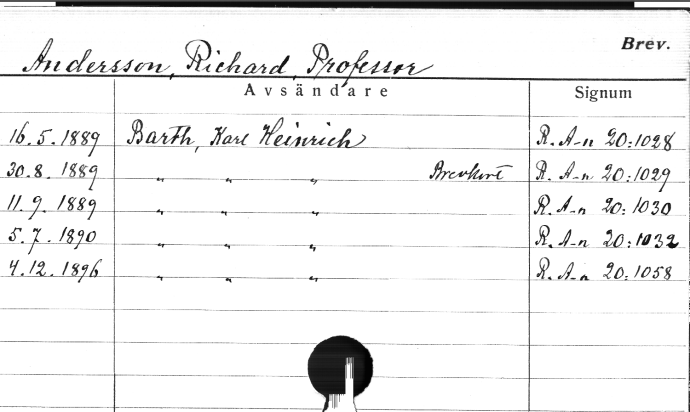 Brev.
Andersson, Richard, Professor
Avsändare Signum
16.5.1889 Barth, Karl Heinrich R. A-n 20:1028
30.8.1889 „ „ „ Brevkort R. A-n 20:1029
11.9.1889 „ „ „ R. A-n 20:1030
5.7.1890 „ „ „ R. A-n 20:1032
4.12.1896 „ „ „ R. A-n 20:1058